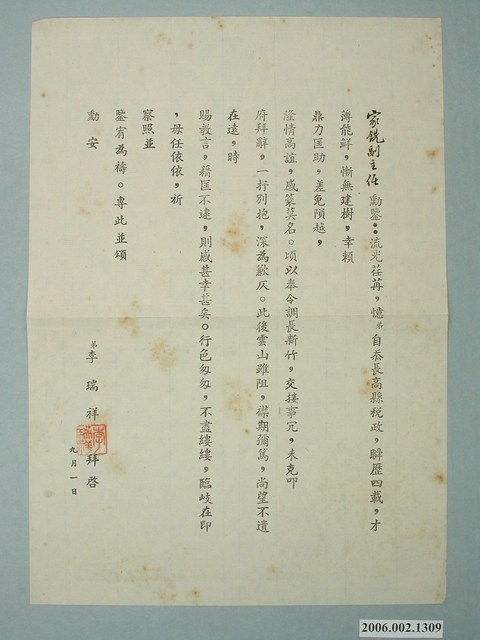 家銑副主任勳鑒：流光荏苒，憶弟自忝長高縣稅政，瞬歷四載，才
薄能鮮，慚無建樹，幸賴
鼎力匡助，差免隕越，
隆情高誼，感篆莫名。頃以奉令調長新竹，交接事冗，未克叩
府拜辭，一抒別抱，深為歉仄。此後雲山雖阻，襟期彌篤，尚望不遺
在遠，時
賜教言，藉匡不逮，則感甚幸甚矣。行色匆匆，不盡縷縷，臨歧在即
，毋任依依，祈
察照並
鑒宥為禱。專此並頌
勳安
弟李瑞祥拜啓
李瑞祥
九月一日
2006.002.1309